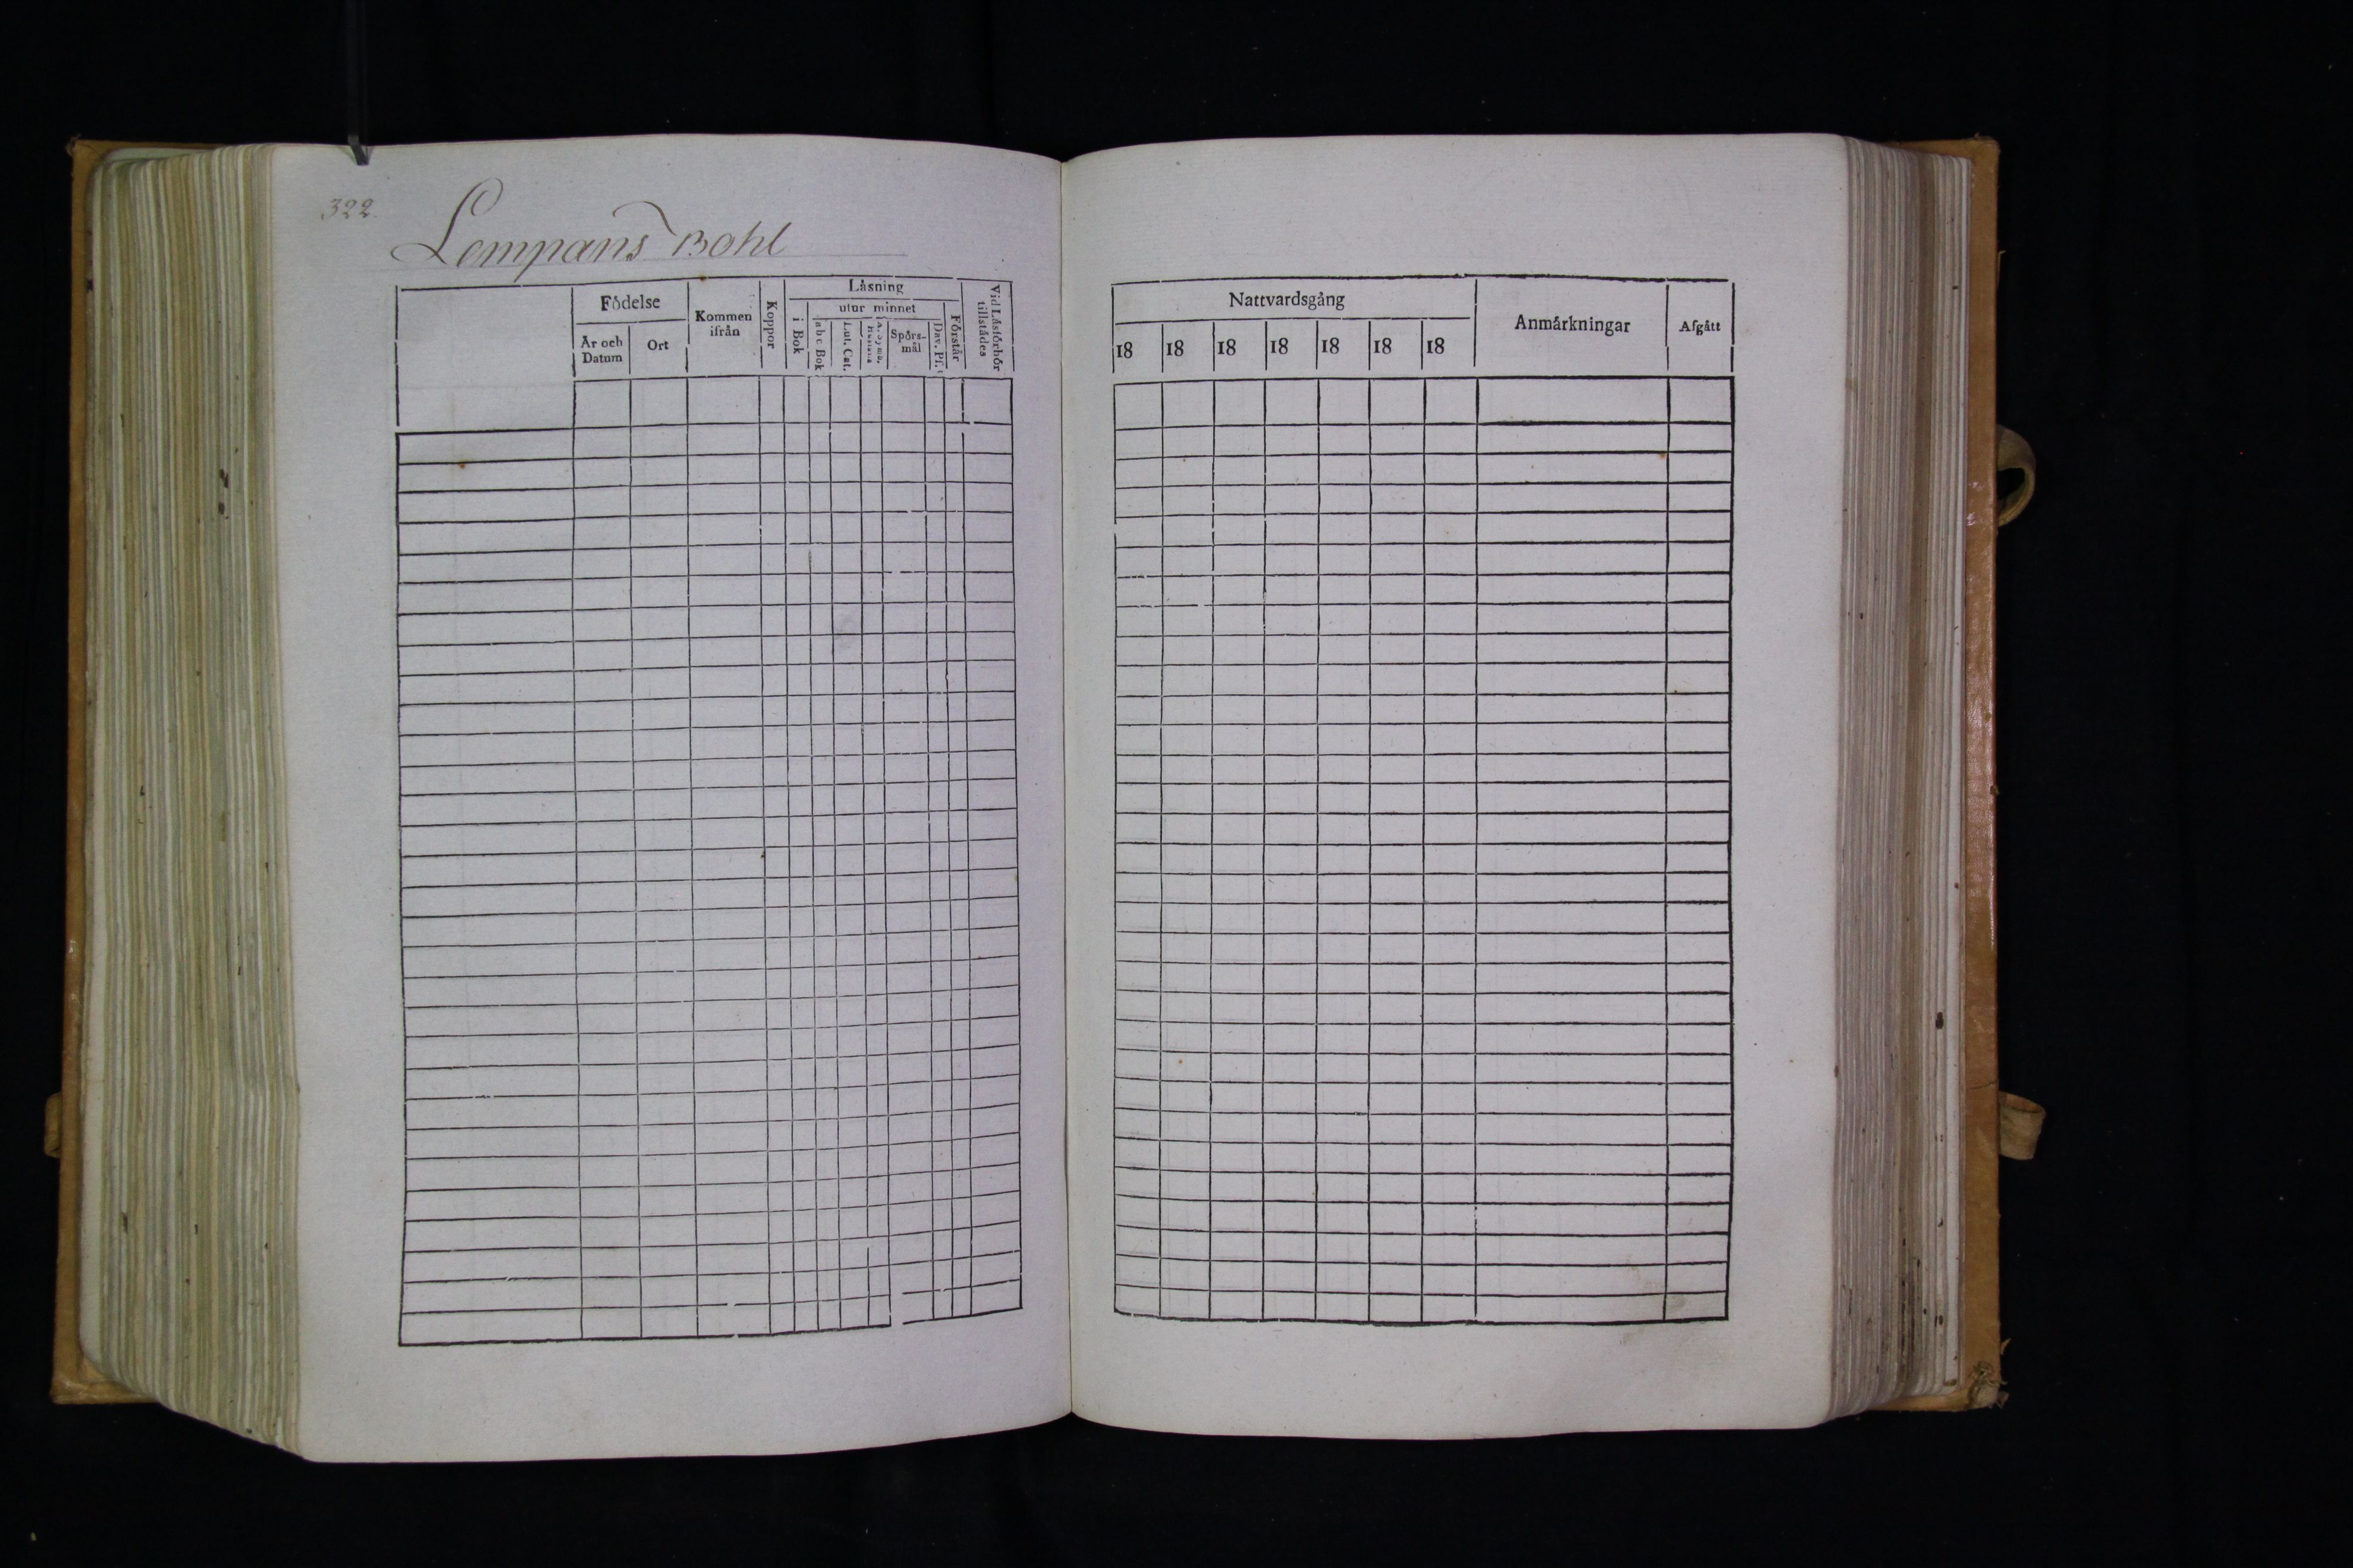 322.
Lempans Bohl
Födelse
År och Datum
Ort
Kommen ifrån
Koppor
Läsning
i Bok
utur minnet
abc Bok
Lut. Cat.
Spörs-
mål
Dav. Ps.
Förstår
Vid Läsförhör tillstädes
Nattvardsgång
18 18 18 18 18 18 18
Anmärkningar
Afgått